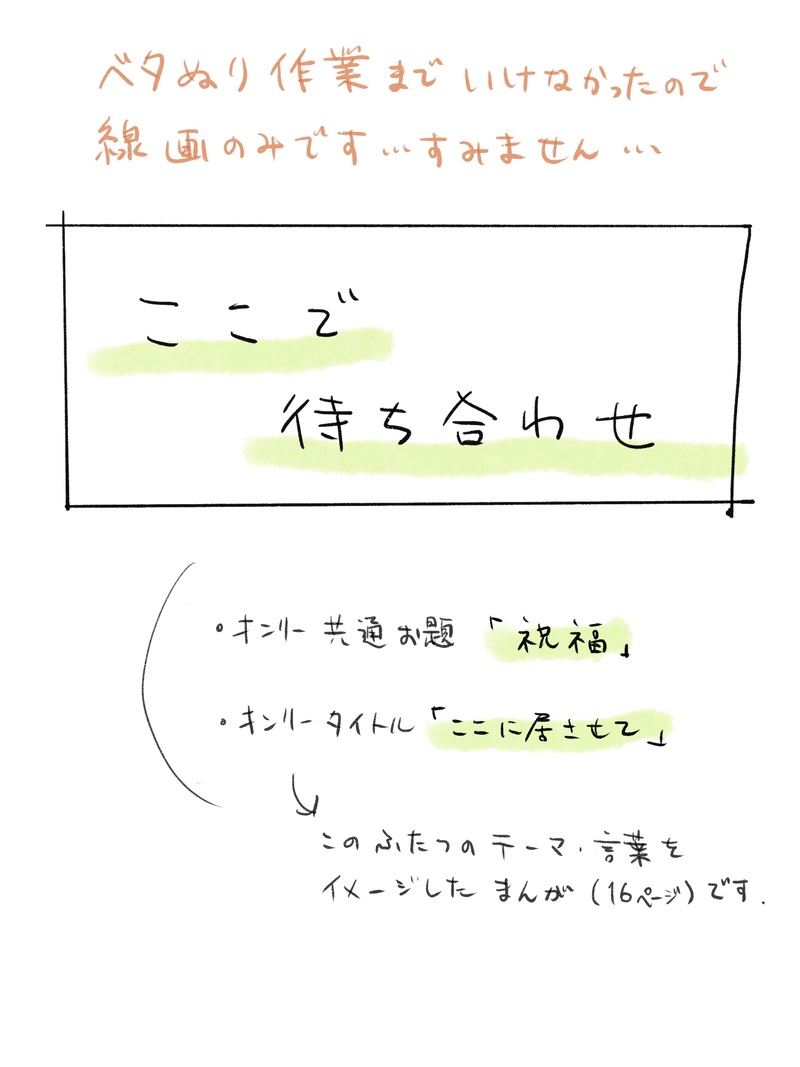 ベタぬり作業までいけなかったので
線画のみです…すみません…
ここで
待ち合わせ
・オンリー共通お題「祝福」
・オンリータイトル「ここに居させて」
このふたつのテーマ・言葉を
イメージしたまんが(16ページ)です.